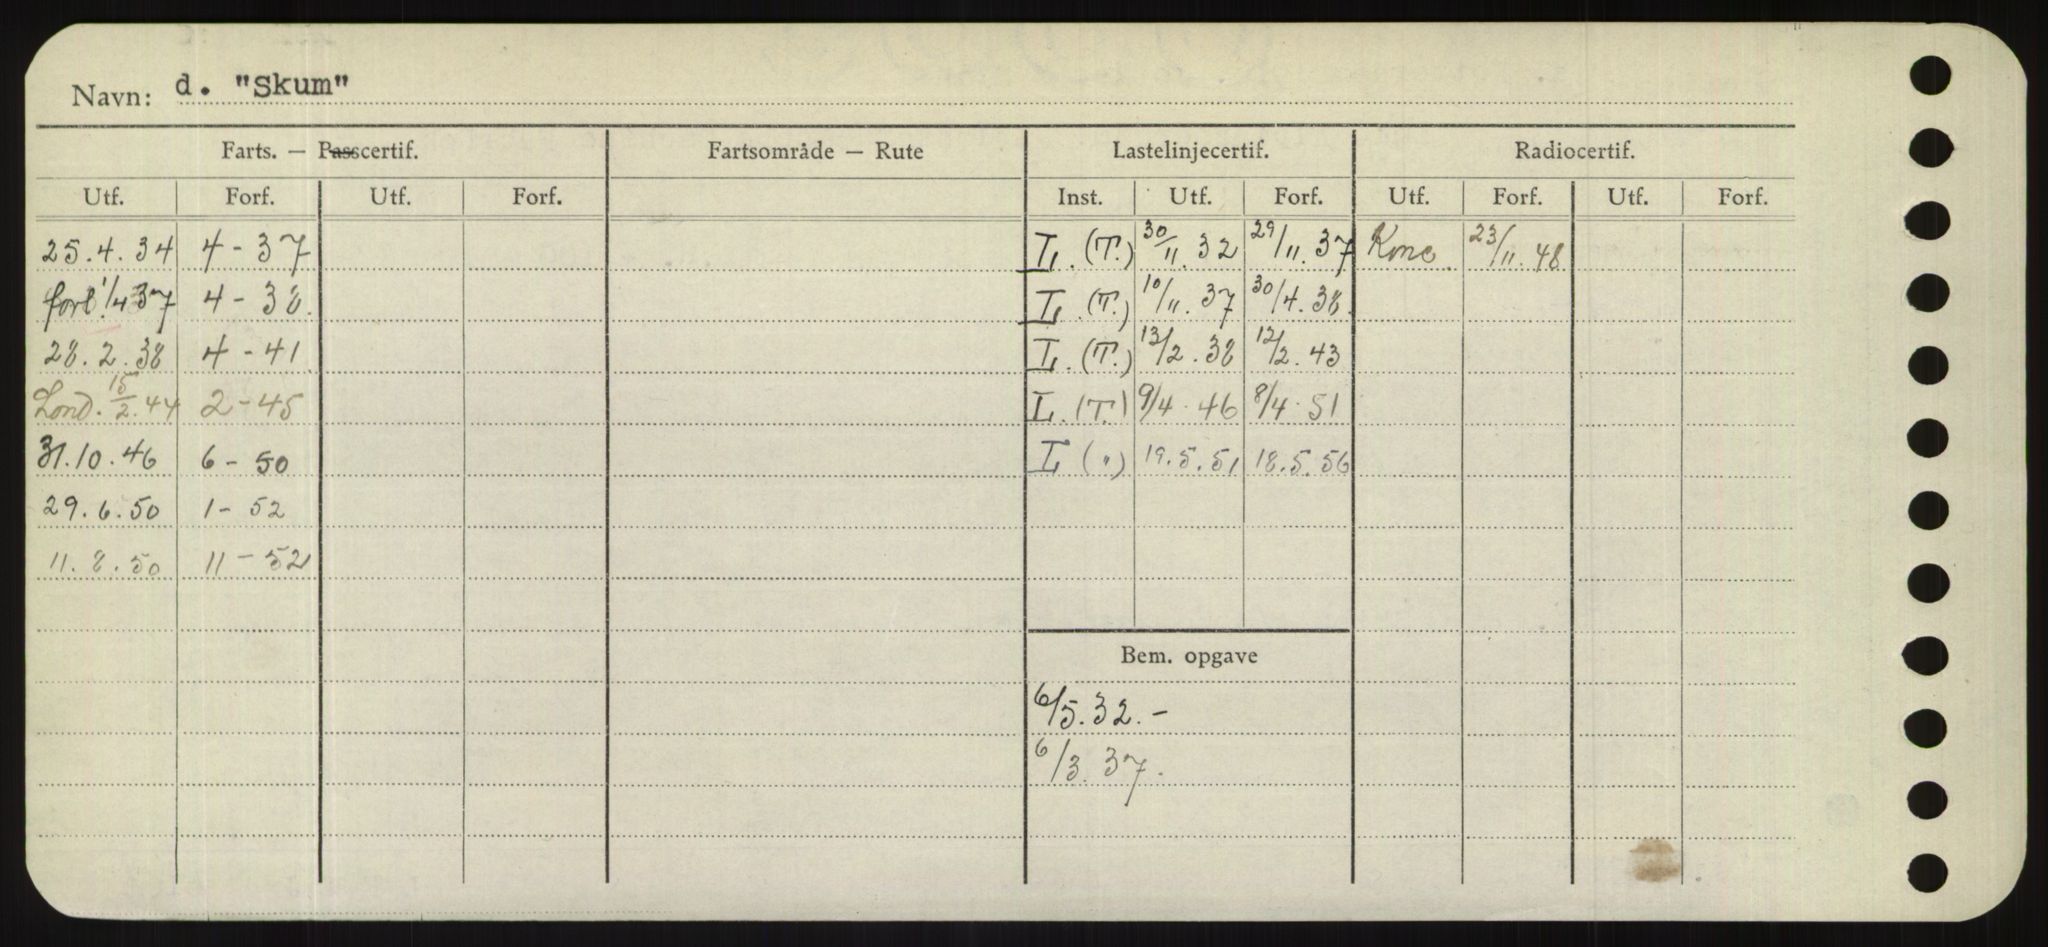 Navn: d. "Skum"
Farts. — Passcertif. Fartsområde — Rute Lastelinjecertif. Radiocertif.
Utf. Forf. Utf. Forf. Inst. Utf. Forf. Utf. Forf. Utf. Forf.
25.4.34 4-37 L. (T.) 30/11.32 29/11.37 Konc. 23/11.48
forl. 1/4 37 4-38. L. (T.) 10/11.37 30/4.38.
28.2.38 4-41 L. (T.) 13/2.38 12/2.43
Lond. 15/2.44 2-45 L. (T.) 9/4.46 8/4.51
31.10.46 6-50 L (") 19.5.51 18.5.56
29.6.50 1-52
11.8.50 11-52
Bem. opgave
6/5.32.-
6/3.37.